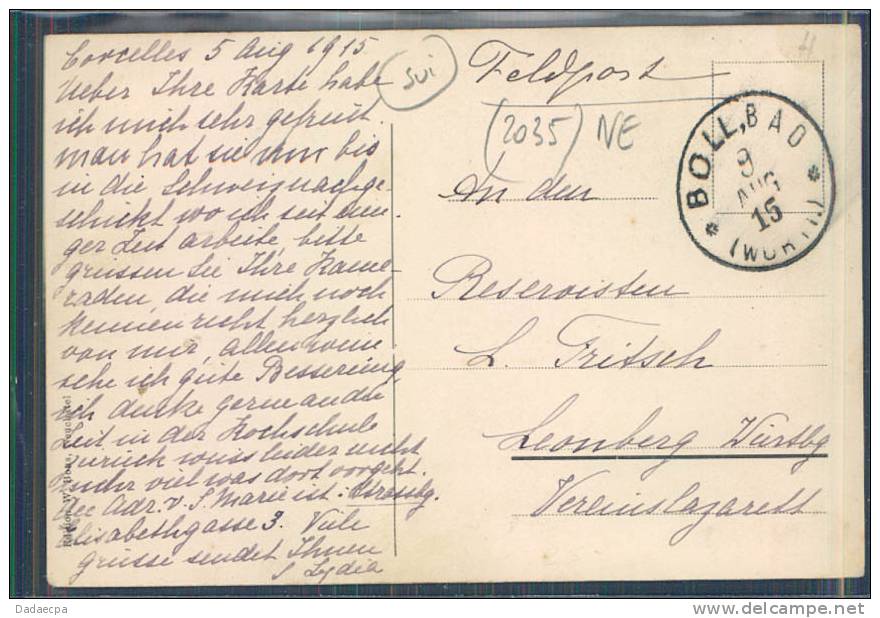 Corcelles 5 Aug 1915
Ueber Ihre Karte habe
ich mich sehr gefreut.
man hat sie mir bis
in die Schweiz nachge-
schickt wo ich seit eini-
ger Zeit arbeite, bitte
grüssen Sie Ihre Kame-
raden, die mich noch
kennen recht herzlich
von mir, allen wün
sche ich gute Besserung,
ich denke gerne an die
Zeit in der Kochschule
zurück weiss leider nicht
mehr viel was dort vorgeht.
Die Adr. v. S. Marie ist: Strassbg.
Elisabethgasse 3. Viele
grüsse sendet Ihnen
S Lydia
SUI
Feldpost
(2035) NE
H
BOLL, BAD
9
AUG
15
* (WÜRTT.) *
An den
Reservisten
L. Fritsch
Leonberg Würtbg
Vereinslazarett
Dadaecpa
www.delcampe.net